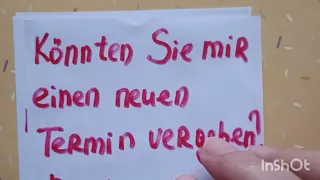 Könnten Sie mir
einen neuen
Termin vergeben?
InShOt